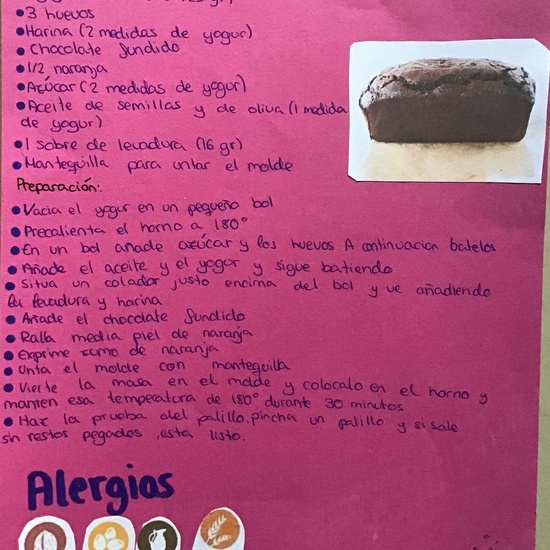 •3 huevos
•Harina (2 medidas de yogur)
•Chocolate fundido
•1/2 naranja
•Azúcar (2 medidas de yogur)
•Aceite de semillas y de oliva (1 medida
de yogur)
•1 sobre de levadura (16 gr)
•Mantequilla para untar el molde
Preparación:
•Vacia el yogur en un pequeño bol
•Precalienta el horno a 180°
•En un bol añade azúcar y los huevos A continuacion batelos
•Añade el aceite y el yogur y sigue batiendo
•Situa un colador justo encima del bol y ve añadiendo
la levadura y harina
•Añade el chocolate fundido
•Ralla media piel de naranja
•Exprime zumo de naranja
•Unta el molde con mantequilla
•Vierte la masa en el molde y colocalo en el horno y
manten esa temperatura de 180° durante 30 minutos
•Haz la prueba del palillo, pincha un palillo y si sale
sin restos pegados, esta listo.
Alergias